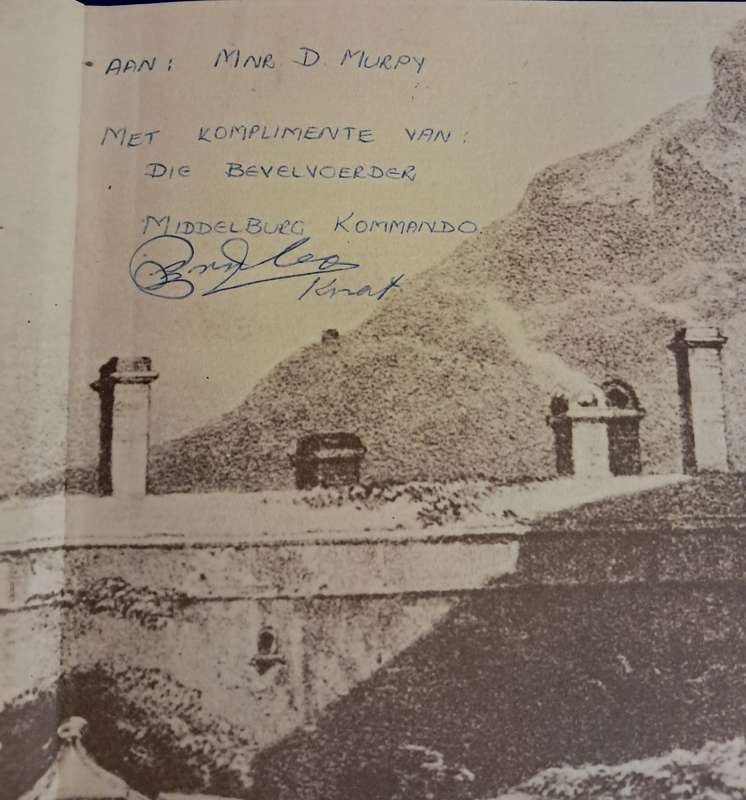 AAN: MNR D. MURPY
MET KOMPLIMENTE VAN:
DIE BEVELVOERDER
MIDDELBURG KOMMANDO.
Kmdt